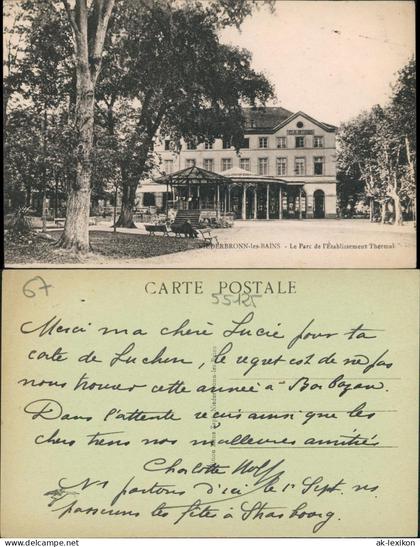 NIEDERBRONN-les-BAINS - Le Parc de l'Établissement Thermal
CARTE POSTALE
67
55125
Merci ma chère Lucie pour ta
cate de Luchon, le regret est de ne pas
nous trouver cette année à Barbazan.
Dans l'attente reçois ainsi que les
chers tiens nos meilleures amitiés
Charlotte Wolff
Ns partons d'ici le 1er Sept. ns
passerons les fêtes à Strasbourg.
ak-lexikon